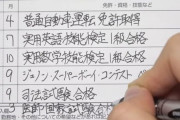 月 免許・資格・技能など
4 普通自動車運転免許取得
7 実用英語技能検定1級合格
10 実用数学技能検定1級合格
9 ジュノン・スーパーボーイ・コンテスト
9 司法試験合格
3 医師国家試験合格